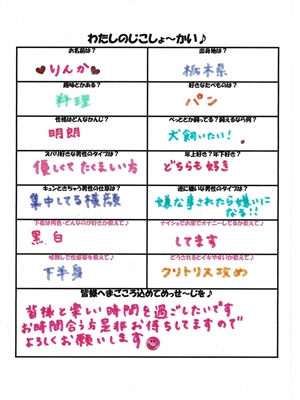 わたしのじこしょ～かい♪
お名前は？
出身地は？
りんか
栃木県
趣味とかある？
好きなたべものは？
料理
パン
性格はどんなかんじ？
ぺっととか飼ってる？飼えるなら何？
明朗
犬飼いたい！
ズバリ好きな男性のタイプは？
年上好き？年下好き？
優しくて たくましい方
どちらも好き
キュンときちゃう男性の仕草は？
逆に嫌いな男性のタイプは？
集中してる横顔
嫌な事されたら嫌いに
なる！！
下着は何色・どんなのが好きか教えて♪
ナイショでお家でオナニーしてるか教えて♪
黒 白
してます
下半身
クリトリス攻め
皆様へまごころ込めてめっせ～じを♪
皆様と楽しい時間を過ごしたいです
お時間合う方是非お待ちしてますので
よろしくお願いします